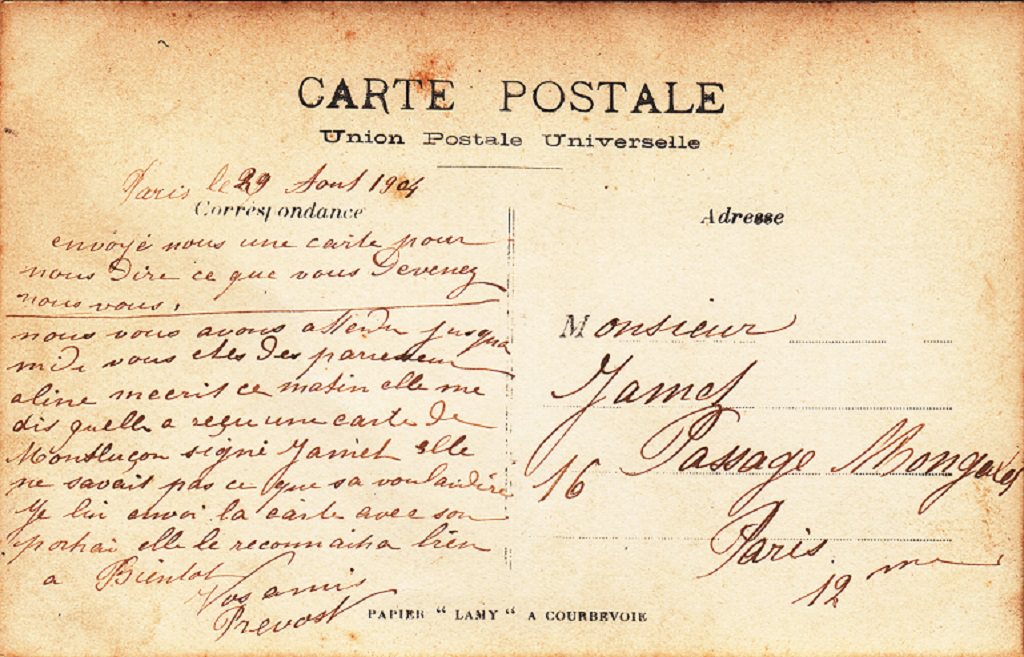 CARTE POSTALE
Union Postale Universelle
Paris le 29 Aout 1904
Correspondance
envoyé nous une carte pour
nous dire ce que vous devenez
nous vous.
nous vous avons attendu jusqua
midi vous etes des
aline mecrit ce matin elle me
dis quelle a reçu une carte de
Montluçon signé Jamet elle
ne savait pas ce que sa voulaidire
Je lui envoi la carte avec son
portrai elle le reconnaitra bien
a Bientot
Vos amis
Prevost
Adresse
Monsieur
Jamet
16 Passage
Paris
12 me
PAPIER "LAMY" A COURBEVOIE